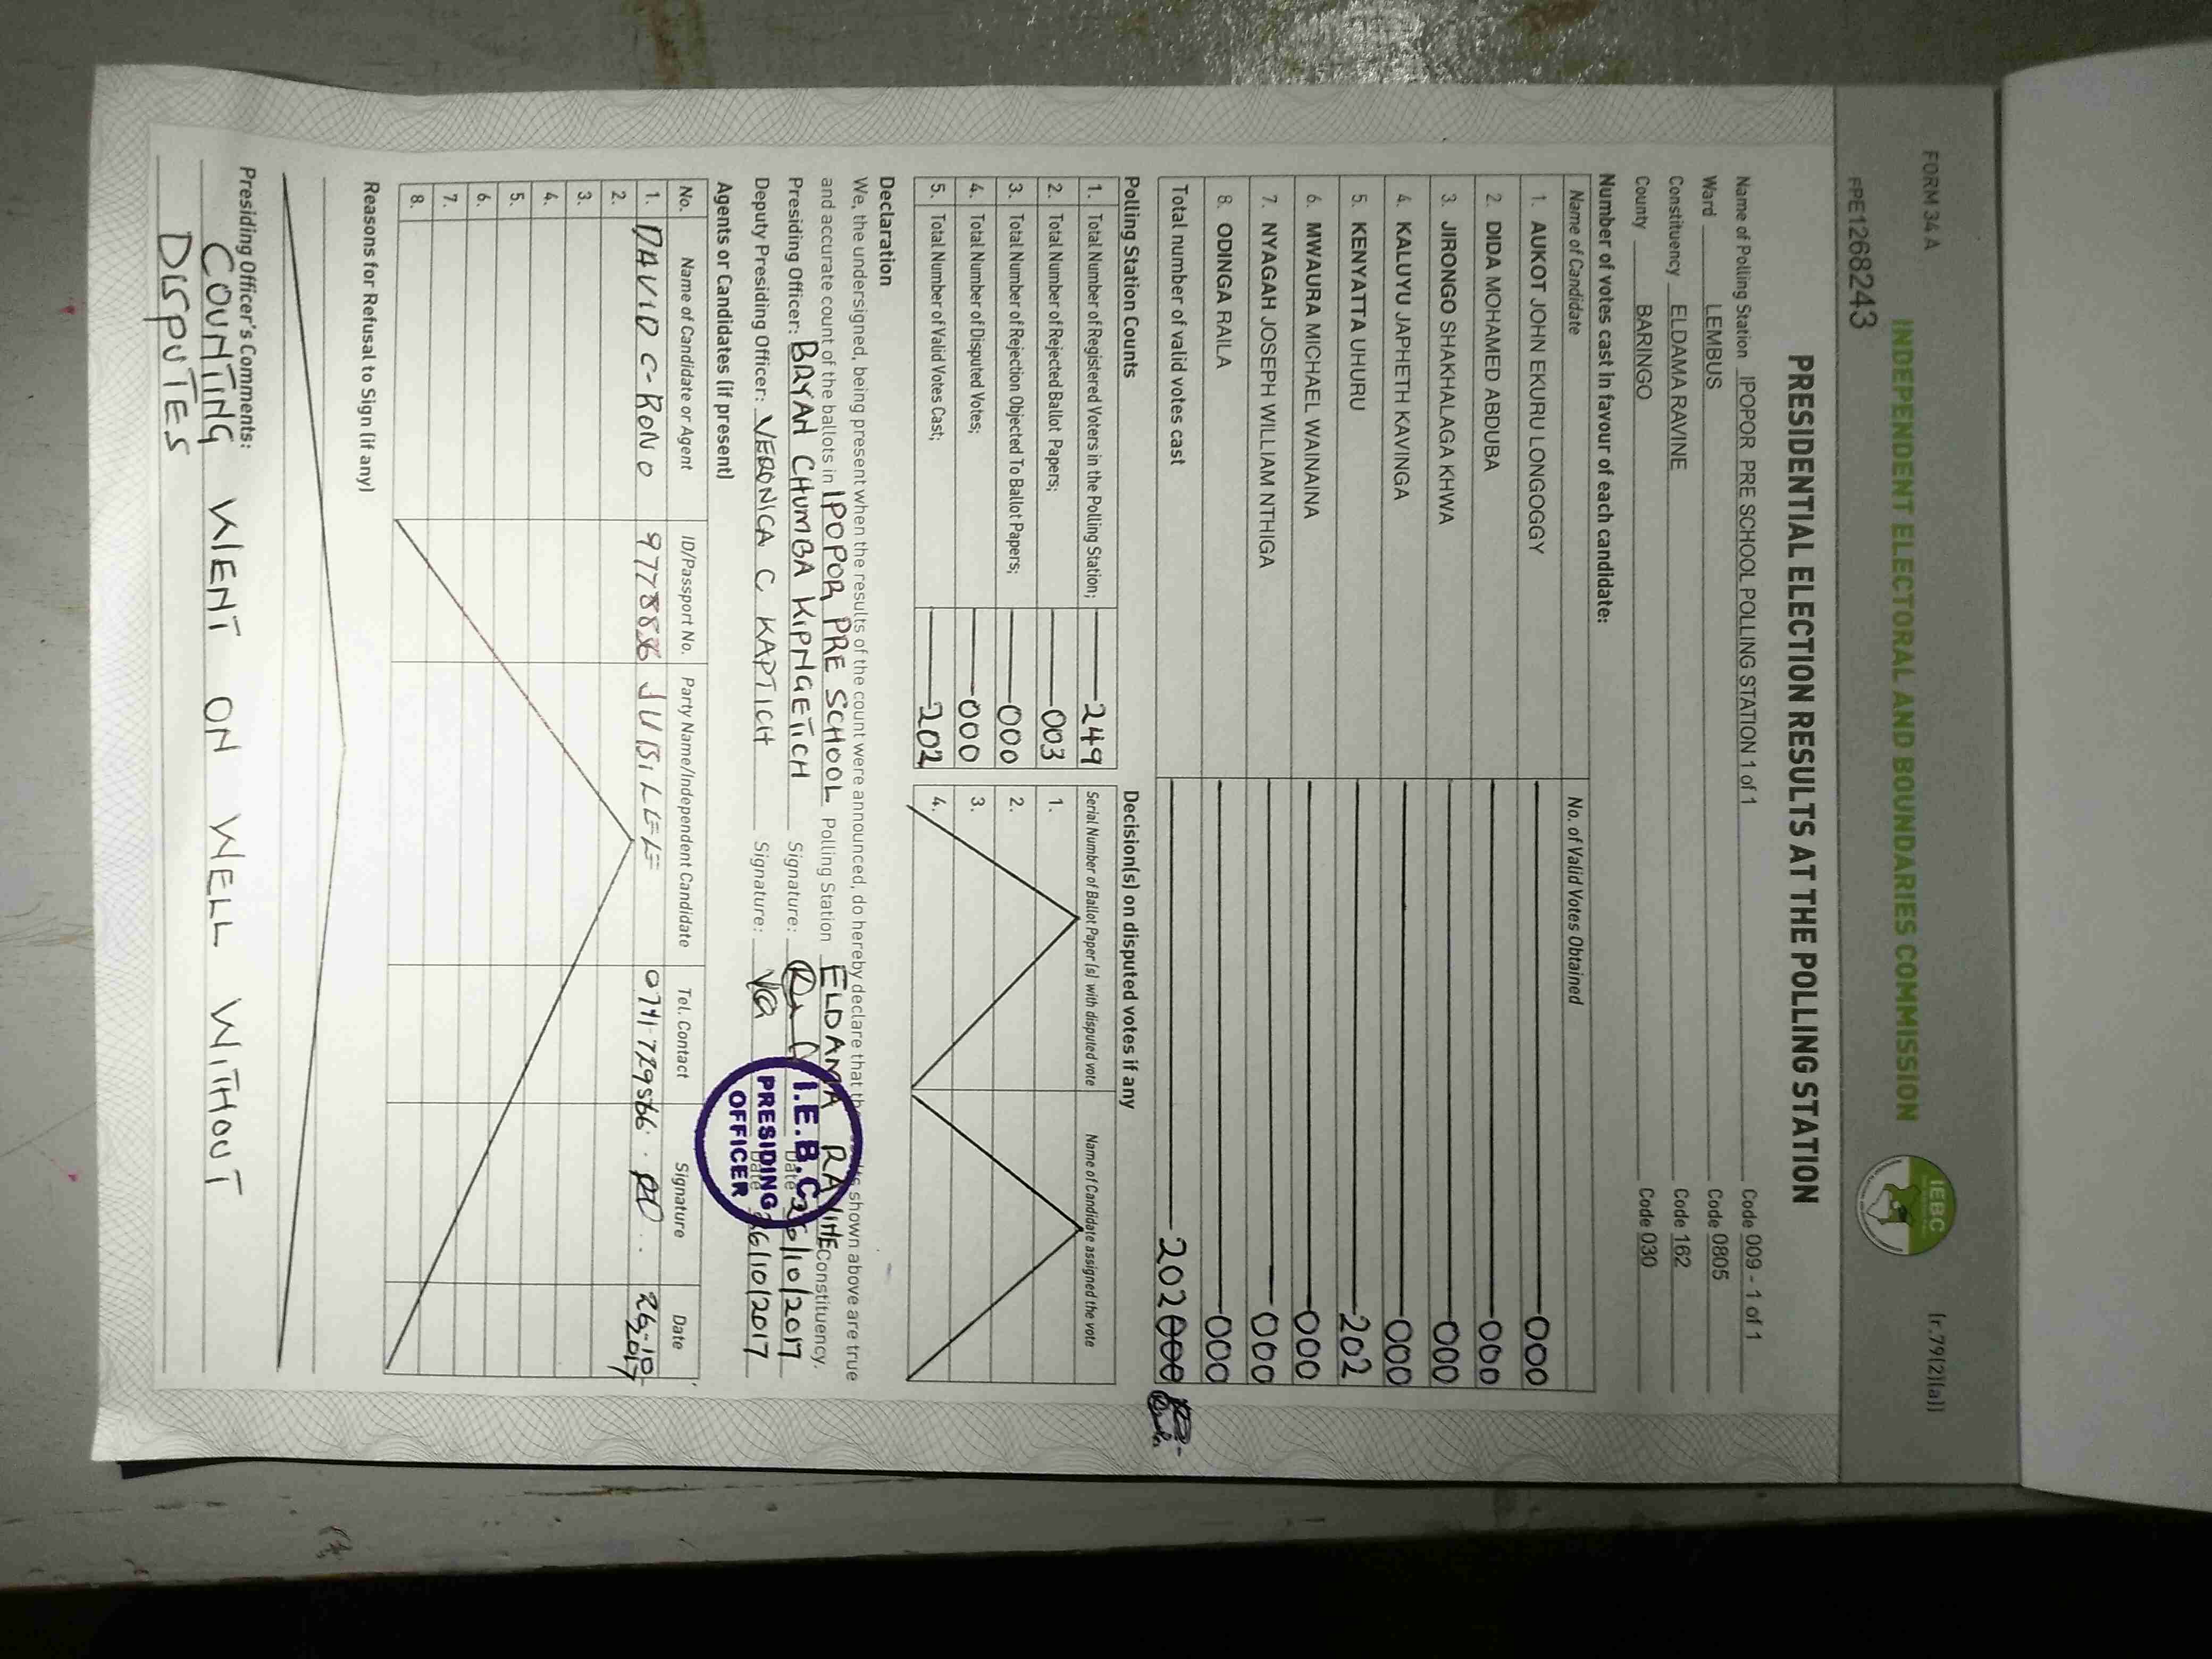 FORM 34 A
[r.79(2)(a)]
FPE1268243
INDEPENDENT ELECTORAL AND BOUNDARIES COMMISSION
IEBC
PRESIDENTIAL ELECTION RESULTS AT THE POLLING STATION
Name of Polling Station IPOPOR PRE SCHOOL POLLING STATION 1 of 1 Code 009 - 1 of 1
Ward LEMBUS Code 0805
Constituency ELDAMA RAVINE Code 162
County BARINGO Code 030
Number of votes cast in favour of each candidate:
Name of Candidate No. of Valid Votes Obtained
1. AUKOT JOHN EKURU LONGOGGY 000
2. DIDA MOHAMED ABDUBA 000
3. JIRONGO SHAKHALAGA KHWA 000
4. KALUYU JAPHETH KAVINGA 000
5. KENYATTA UHURU 202
6. MWAURA MICHAEL WAINAINA 000
7. NYAGAH JOSEPH WILLIAM NTHIGA 000
8. ODINGA RAILA 000
Total number of valid votes cast 202 000
Polling Station Counts
1. Total Number of Registered Voters in the Polling Station; 249
2. Total Number of Rejected Ballot Papers; 003
3. Total Number of Rejection Objected To Ballot Papers; 000
4. Total Number of Disputed Votes; 000
5. Total Number of Valid Votes Cast; 202
Decision(s) on disputed votes if any
Serial Number of Ballot Paper (s) with disputed vote Name of Candidate assigned the vote
1.
2.
3.
4.
Declaration
We, the undersigned, being present when the results of the count were announced, do hereby declare that the shown above are true
and accurate count of the ballots in IPOPOR PRE SCHOOL Polling Station ELDAMA RAVINE Constituency.
Presiding Officer: BRYAN CHUMBA KIPNGETICH Signature: Date 26/10/2017
Deputy Presiding Officer: VERONICA C KAPTICH Signature: Date 26/10/2017
I.E.B.C
PRESIDING
OFFICER
Agents or Candidates (if present)
No. Name of Candidate or Agent ID/Passport No. Party Name/Independent Candidate Tel. Contact Signature Date
1. DAVID C-RONO JUBILEE 0741-729566 26-10-2017
2.
3.
4.
5.
6.
7.
8.
Reasons for Refusal to Sign (if any)
Presiding Officer's Comments:
COUNTING WENT ON WELL WITHOUT
DISPUTES